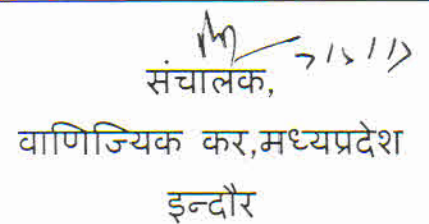 संचालक,
वाणिज्यिक कर,मध्यप्रदेश
इन्दौर